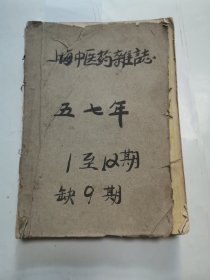 上海中医药雜誌.
五七年
1至12期
缺9期